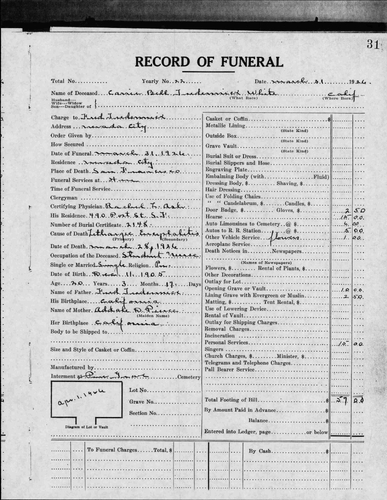 31
RECORD OF FUNERAL
Total No. Yearly No. 22 Date March 31 1926
Name of Deceased Carrie Bell White Calif
Husband— Wife—Widow Son—Daughter of (What Race) (Where Born)
Charge to Fred
Address Nevada City
Order Given by
How Secured
Date of Funeral March 31, 1926
Residence Nevada City
Place of Death San Francisco
Funeral Services at Home
Time of Funeral Service
Clergyman
Certifying Physician Rachel L. Ash
His Residence 490 Post St S.F.
Number of Burial Certificate 2198
Cause of Death Lethargic Encephalitis
(Primary) (Secondary)
Date of Death March 28, 1926
Occupation of the Deceased Student Nurse
Single or Married Single Religion
Date of Birth Dec 11 1905
Age 20 Years 3 Months 17 Days
Name of Father Fred
His Birthplace California
Name of Mother Pierce
(Maiden Name)
Her Birthplace California
Body to be Shipped to
Size and Style of Casket or Coffin
Manufactured by
Interment at Pine Grove Cemetery
Apr. 1, 1926
Lot No.
Grave No.
Section No.
Diagram of Lot or Vault
Casket or Coffin
Metallic Lining
(State Kind)
Outside Box
(State Kind)
Grave Vault
(State Kind)
Burial Suit or Dress
Burial Slippers and Hose
Engraving Plate
Embalming Body (with Fluid)
Dressing Body, $ Shaving, $
Hair Dressing
Use of Folding Chairs
" " Candelabrum, $ Candles, $
Door Badge, $ Gloves, $ 2 50
Hearse
Auto Limousines to Cemetery @ $
Autos to R. R. Station @ $ 5 00
Other Vehicle Service flowers 1 00
Aeroplane Service
Death Notices in Newspapers
(Names of Newspapers)
Flowers, $ Rental of Plants, $
Other Decorations
Outlay for Lot
Opening Grave or Vault 10 00
Lining Grave with Evergreen or Muslin 2 50
Matting, $ Tent Rental, $
Use of Lowering Device
Rental of Vault
Outlay for Shipping Charges
Removal Charges
Incineration
Personal Services
Singers
Church Charges, $ Minister, $
Telegrams and Telephone Charges
Pall Bearer Service
Total Footing of Bill $
By Amount Paid in Advance
Balance
Entered into Ledger, page or below.
To Funeral Charges. Total $ By Cash $